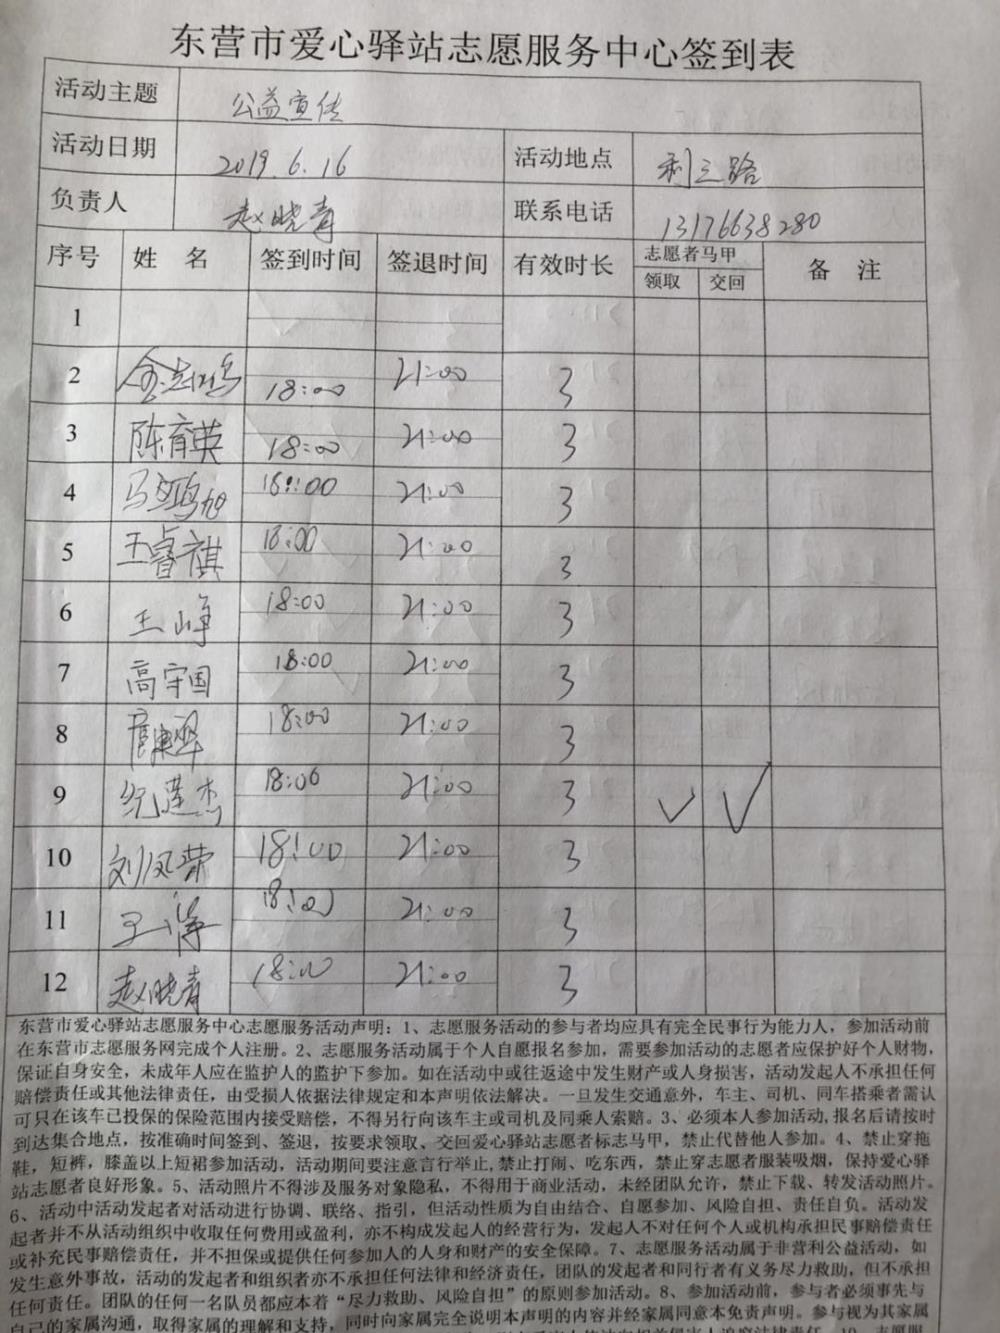 东营市爱心驿站志愿服务中心签到表
活动主题 公益宣传
活动日期 2019.6.16 活动地点 利三路
负责人 赵晓青 联系电话 13176638280
序号 姓 名 签到时间 签退时间 有效时长 志愿者马甲 备 注
领取 交回
1
2 18:00 21:00 3
3 陈育英 18:00 21:00 3
4 马鸿旭 18:00 21:00 3
5 王睿祺 18:00 21:00 3
6 王峥 18:00 21:00 3
7 高守国 18:00 21:00 3
8 18:00 21:00 3
9 纪莲杰 18:00 21:00 3 ✓ ✓
10 刘凤荣 18:00 21:00 3
11 王涛 18:00 21:00 3
12 赵晓青 18:00 21:00 3
东营市爱心驿站志愿服务中心志愿服务活动声明：1、志愿服务活动的参与者均应具有完全民事行为能力人，参加活动前
在东营市志愿服务网完成个人注册。2、志愿服务活动属于个人自愿报名参加，需要参加活动的志愿者应保护好个人财物，
保证自身安全，未成年人应在监护人的监护下参加。如在活动中或往返途中发生财产或人身损害，活动发起人不承担任何
赔偿责任或其他法律责任，由受损人依据法律规定和本声明依法解决。一旦发生交通意外，车主、司机、同车搭乘者需认
可只在该车已投保的保险范围内接受赔偿，不得另行向该车主或司机及同乘人索赔。3、必须本人参加活动,报名后请按时
到达集合地点，按准确时间签到、签退，按要求领取、交回爱心驿站志愿者标志马甲，禁止代替他人参加。4、禁止穿拖
鞋，短裤，膝盖以上短裙参加活动，活动期间要注意言行举止,禁止打闹、吃东西，禁止穿志愿者服装吸烟，保持爱心驿
站志愿者良好形象。5、活动照片不得涉及服务对象隐私，不得用于商业活动，未经团队允许，禁止下载、转发活动照片。
6、活动中活动发起者对活动进行协调、联络、指引，但活动性质为自由结合、自愿参加、风险自担、责任自负。活动发
起者并不从活动组织中收取任何费用或盈利，亦不构成发起人的经营行为，发起人不对任何个人或机构承担民事赔偿责任
或补充民事赔偿责任，并不担保或提供任何参加人的人身和财产的安全保障。7、志愿服务活动属于非营利公益活动，如
发生意外事故，活动的发起者和组织者亦不承担任何法律和经济责任，团队的发起者和同行者有义务尽力救助，但不承担
任何责任。团队的任何一名队员都应本着“尽力救助、风险自担”的原则参加活动。8、参加活动前，参与者必须事先与
自己的家属沟通，取得家属的理解和支持，同时向家属完全说明本声明的内容并经家属同意本免责声明。参与视为其家属